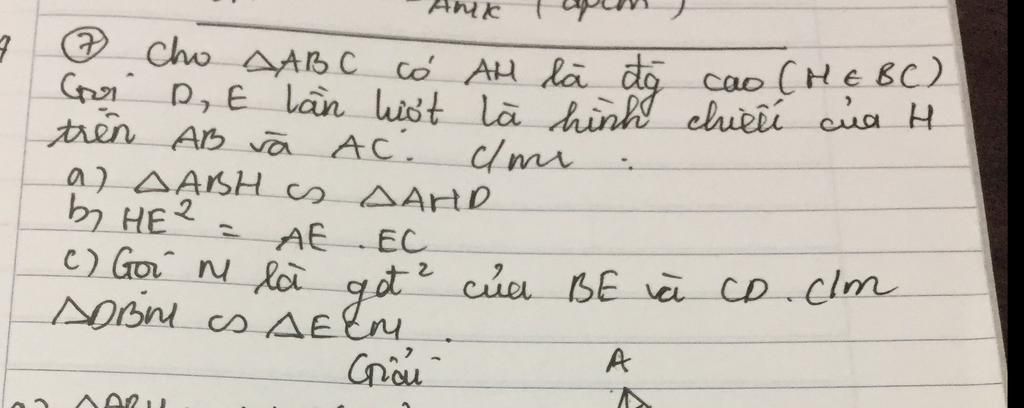 AMK (đpcm)
⑦ Cho △ABC có AH là đg cao (H ∈ BC)
Gọi D, E lần lượt là hình chiếu của H
trên AB và AC. C/m :
a) △ABH ∽ △AHD
b) HE² = AE . EC
c) Gọi M là gđ² của BE và CD. C/m
△DBM ∽ △ECM.
Giải
A
a) △ABH